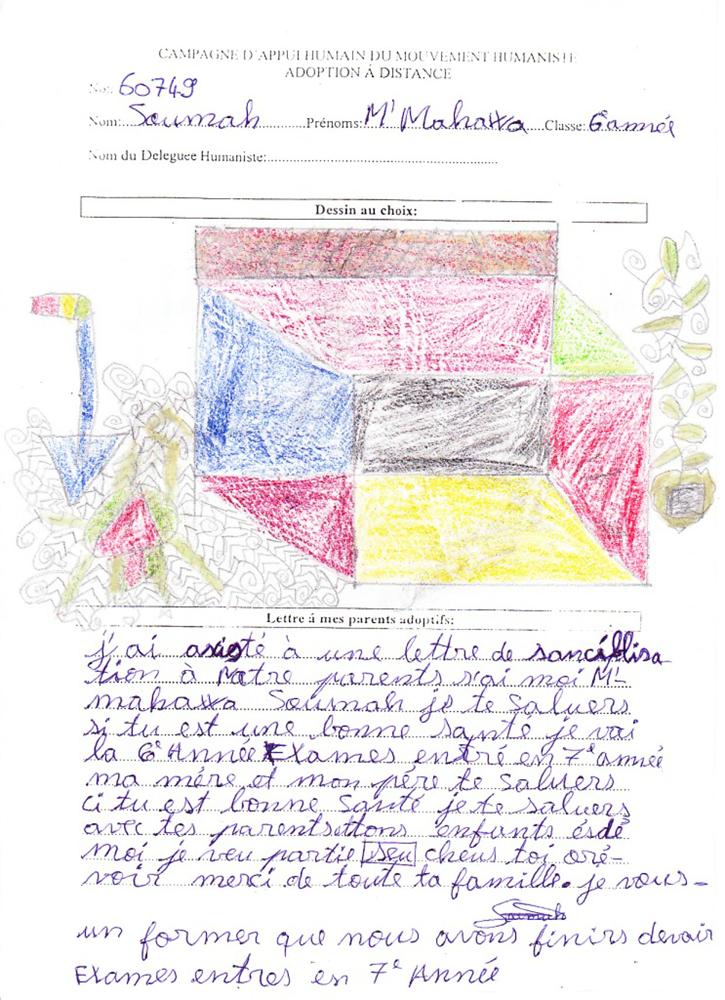 CAMPAGNE D'APPUI HUMAIN DU MOUVEMENT HUMANISTE
ADOPTION Á DISTANCE
No: 60749
Nom: Soumah Prénoms: M' Mahawa Classe: 6année
Nom du Deleguee Humaniste:
Dessin au choix:
Lettre á mes parents adoptifs:
j'ai à une lettre de
tion à parents s'ai moi M'-
mahawa Soumah je te Saluers
si tu est une bonne santé je vai
la 6e Année Exames entré en 7e année
ma mére et mon pére te Saluers
ci tu est bonne Santé je te saluers
avec tes parents ettons enfants ésdé
moi je veu partie seu cheus toi oré-
voir merci de toute ta famille. je vous-
Soumah
un former que nous avons finirs devair
Exames entres en 7e Année